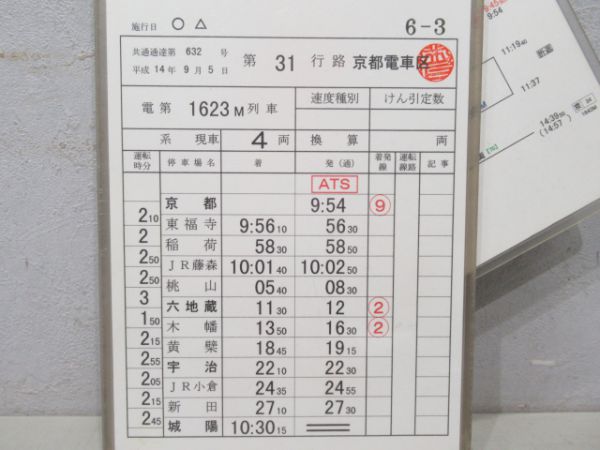 施行日 ○ △ 6-3
共通通達第 632 号
平成 14年 9月 5日
第 31 行路 京都電車区
電 第 1623M 列車 速度種別 けん引定数
系 現車 4 両 換算 両
運転時分 停車場名 着 発(通) 着発線 運転線路 記事
ATS
京都 9:54 ⑨
2 10
東福寺 9:56 10 56 30
2
稲荷 58 30 58 50
2 50
JR藤森 10:01 40 10:02 50
2 50
桃山 05 40 08 30
3
六地蔵 11 30 12 ②
1 50
木幡 13 50 16 30 ②
2 15
黄檗 18 45 19 15
2 55
宇治 22 10 22 30
2 05
JR小倉 24 35 24 55
2 15
新田 27 10 27 30
2 45
城陽 10:30 15
9:54
11:19 40
11:37
14:39 50
(14:57)